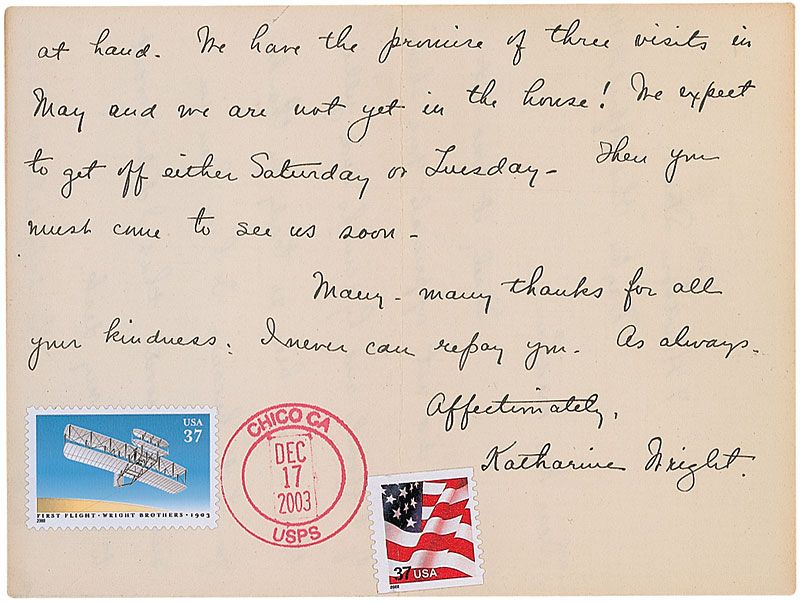 at hand. We have the promise of three visits in
May and we are not yet in the house! We expect
to get off either Saturday or Tuesday - Then you
must come to see us soon -
Many - many thanks for all
your kindness. I never can repay you. As always.
Affectionately,
Katharine Wright.
USA
37
FIRST FLIGHT · WRIGHT BROTHERS · 1903
CHICO CA
DEC
17
2003
USPS
37 USA